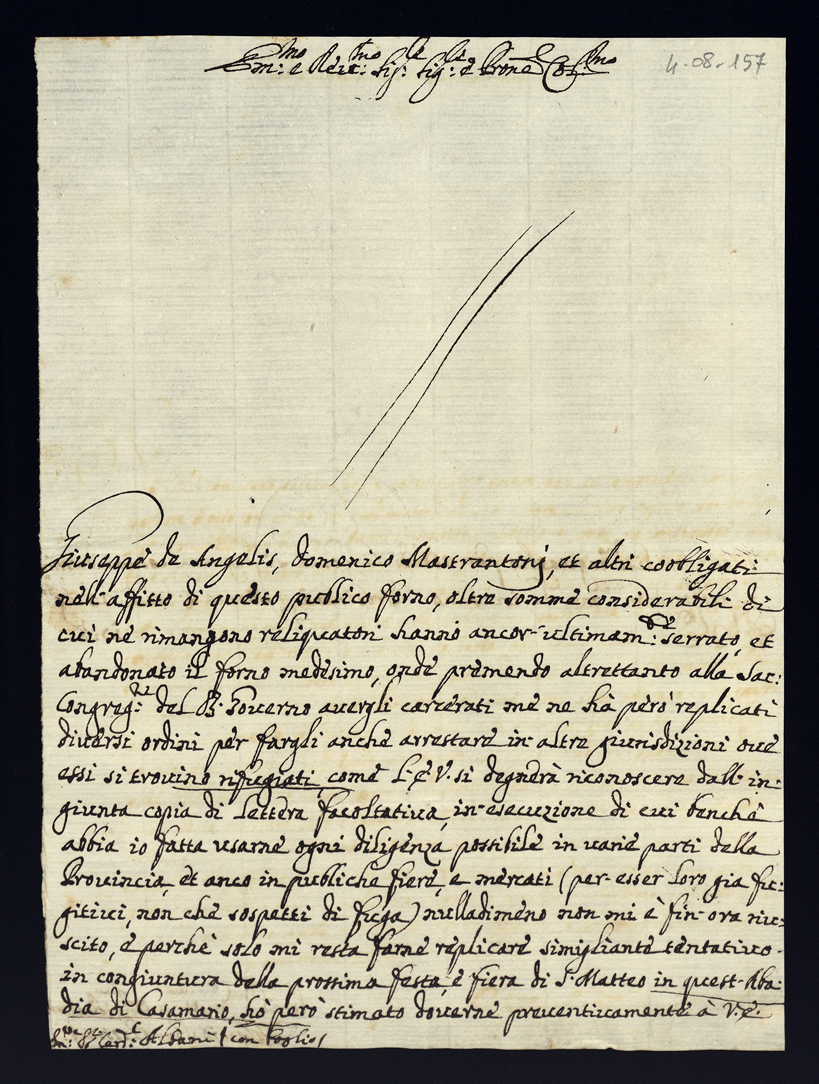 Em:mo e Rev:mo Sig:r Sig:re e Prone Col:mo
4-08-157
Giuseppe de Angelis, Domenico Mastrantonj, et altri coobligati
nell'affitto di questo publico forno, oltre somme considerabili di
cui ne rimangono reliquatori hanno ancor ultimam:te serrato, et
abandonato il forno medesimo, onde premendo altrettanto alla Sac:
Congreg:ne del B. Governo avergli carcerati me ne hà però replicati
diversi ordini per fargli anche arrestare in altre giurisdizioni ove
essi si trovino rifugiati, come l'E.V. si degnerà riconoscere dall'in:
giunta copia di lettera facoltativa, in esecuzione di cui benchè
abbia io fatta usarne ogni diligenza possibile in varie parti della
Provincia, et anco in publiche fiere, e mercati (per esser loro gia fug:
gitivi, non che sospetti di fuga) nulladimeno non mi è fin ora riu:
scito, e perchè solo mi resta farne replicare simigliante tentativo
in congiuntura della prossima festa, e fiera di S. Matteo in quest'Aba:
dia di Casamario, hò però stimato doverne preventivamente à V.E.
Card:e Albani (con foglio)